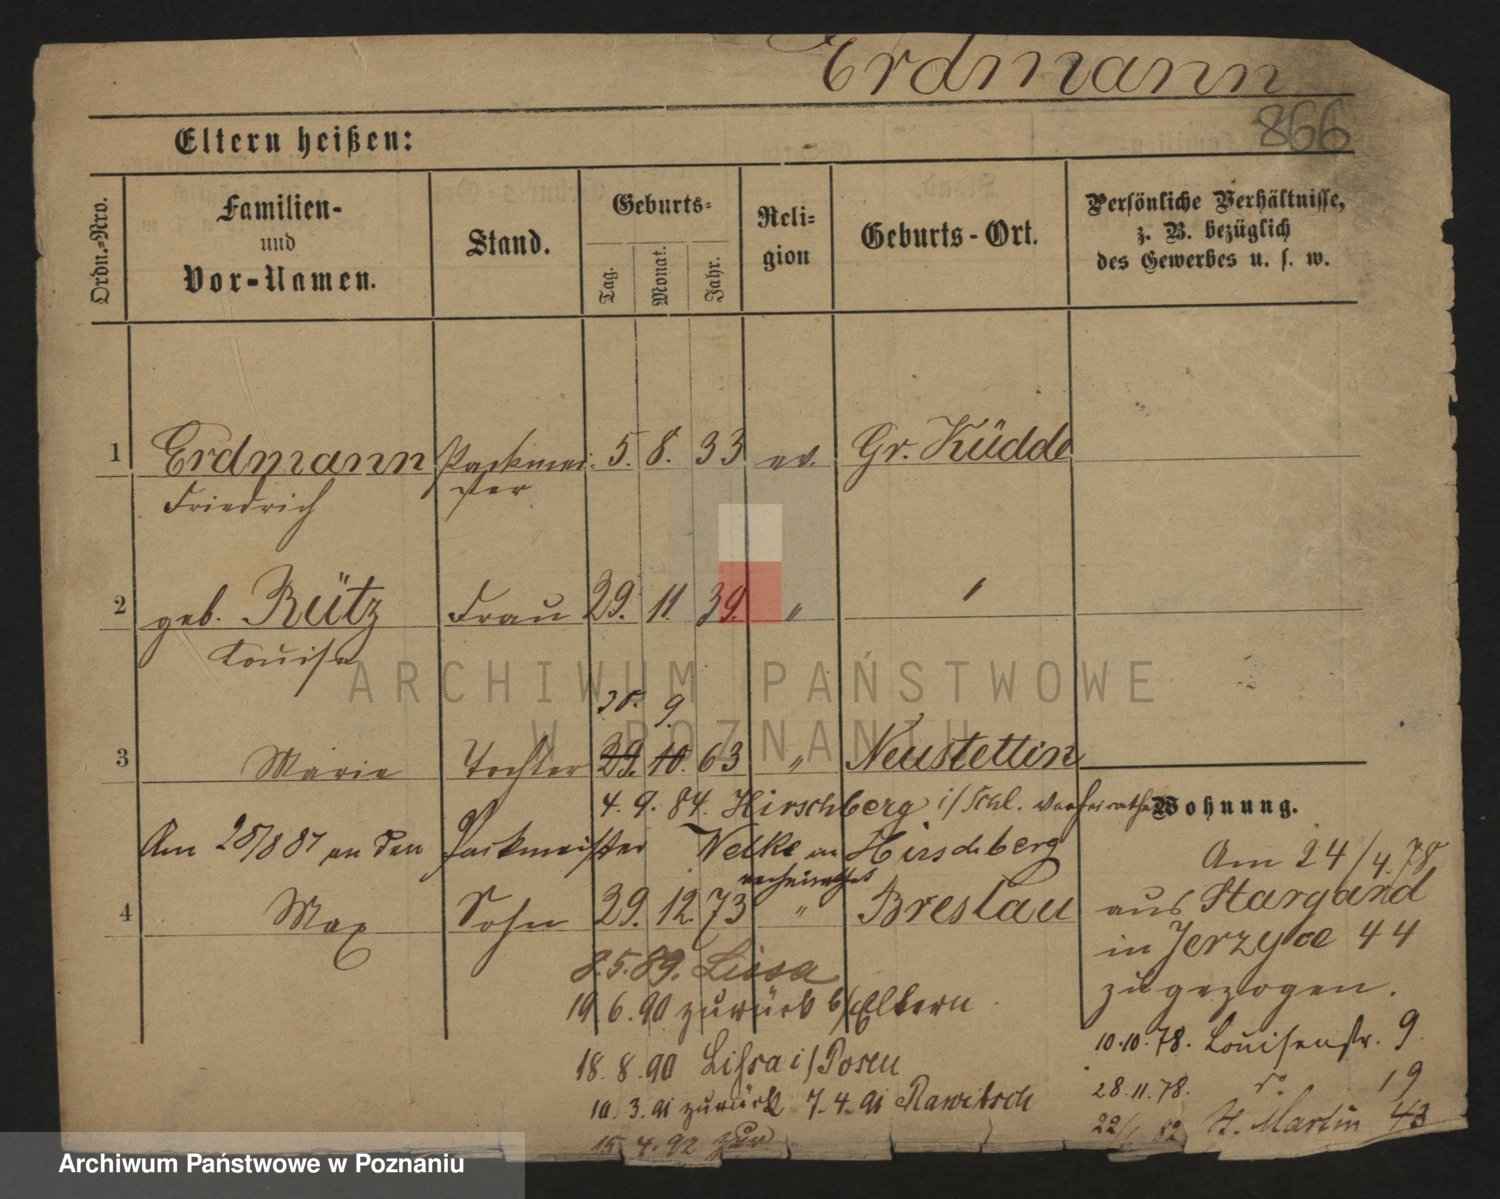 Erdmann
866
Eltern heißen:
Ordn.-Nro.
Familien- und Vor-Namen.
Stand.
Geburts-
Tag.
Monat.
Jahr.
Religion
Geburts-Ort.
Persönliche Verhältnisse, z. B. bezüglich des Gewerbes u. s. w.
1 Erdmann Packmei- 5. 8. 33 ev. Gr. Küdde
Friedrich ster
2 geb. Rütz Frau 29. 11. 39. " "
Louise
30. 9.
3 Marie Tochter 29. 10. 63 " Neustettin
4. 9. 84. Hirschberg i/Schl. verheirathet
Am 25/8 87 an den Packmeister Welke in Hirschberg
verheirathet
4 Max Sohn 29. 12. 73 " Breslau
8.5.89. Lissa
19.6.90 zurück b/Eltern
18.8.90 Lissa i/Posen
10.3.91 zurück 7.4.91 Rawitsch
15.4.92 zur
Wohnung.
Am 24/4.78
aus Stargard
in Jerzyce 44
zugezogen.
10.10.78. Louisenstr. 9.
28.11.78. do 19
St. Martin 43
ARCHIWUM PAŃSTWOWE
W POZNANIU
Archiwum Państwowe w Poznaniu